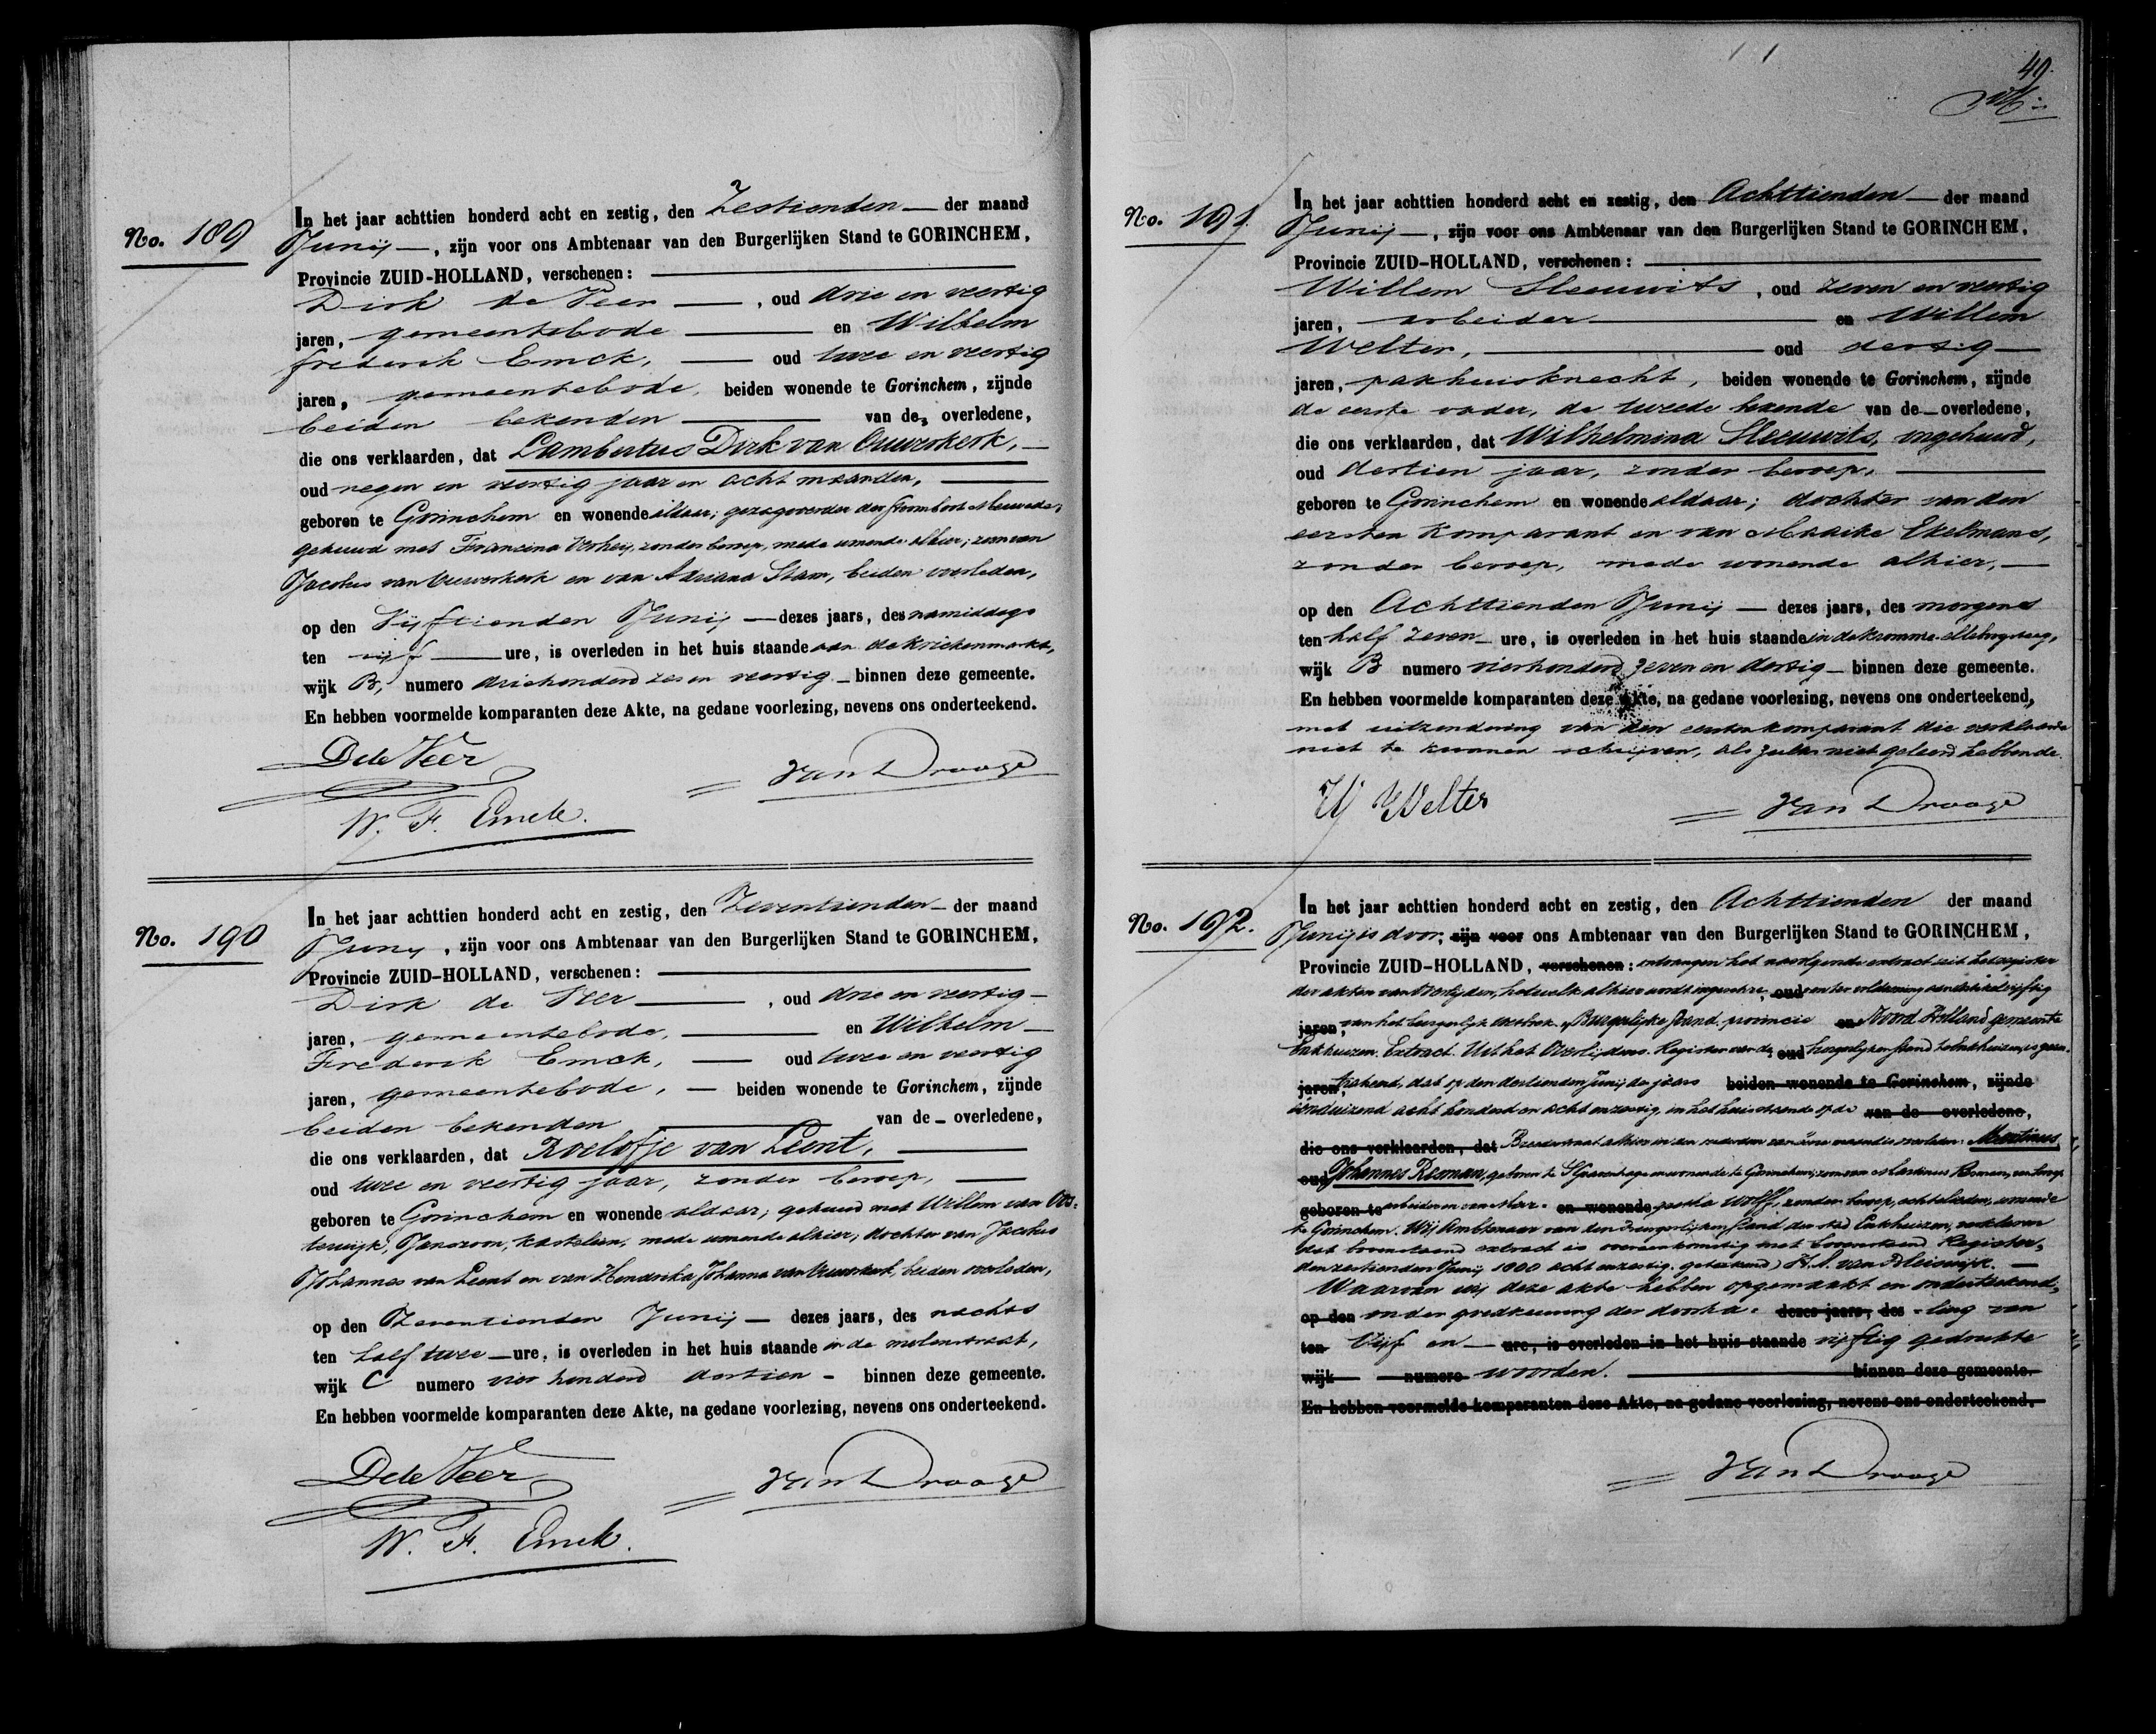 No. 189
In het jaar achttien honderd acht en zestig, den Zestienden — der maand
Junij —, zijn voor ons Ambtenaar van den Burgerlijken Stand te GORINCHEM,
Provincie ZUID-HOLLAND, verschenen: —
Dirk de Veer —, oud drie en veertig
jaren, gemeentebode — en Wilhelm
frederik Emck, — oud twee en veertig
jaren, gemeentebode, beiden wonende te Gorinchem, zijnde
beiden bekenden — van de, overledene,
die ons verklaarden, dat Lambertus Dirk van Ouwerkerk, —
oud negen en veertig jaar en acht maanden, —
geboren te Gorinchem en wonende aldaar; gezagvoerder der stoomboot Merwede;
gehuwd met Francina Verheij, zonder beroep, mede wonende alhier; zoon van
Jacobus van Ouwerkerk en van Adriana Stam, beiden overleden,
op den Vijftienden Junij — dezes jaars, des namiddags
ten vijf — ure, is overleden in het huis staande aan de Krickenmarkt,
wijk B, numero driehonderd zes en veertig — binnen deze gemeente.
En hebben voormelde komparanten deze Akte, na gedane voorlezing, nevens ons onderteekend.
D de Veer
van Draage
W. F. Emck.
No. 190
In het jaar achttien honderd acht en zestig, den Zeventienden — der maand
Junij, zijn voor ons Ambtenaar van den Burgerlijken Stand te GORINCHEM,
Provincie ZUID-HOLLAND, verschenen: —
Dirk de Veer —, oud drie en veertig —
jaren, gemeentebode, — en Wilhelm —
Frederik Emck, — oud twee en veertig
jaren, gemeentebode, — beiden wonende te Gorinchem, zijnde
beiden bekenden — van de — overledene,
die ons verklaarden, dat Roelofje van Leent, —
oud twee en veertig jaar, zonder beroep, —
geboren te Gorinchem en wonende aldaar; gehuwd met Willem van Oos=
terwijk, Janszoon, kastelein, mede wonende alhier; dochter van Jacobus
Johannes van Leent en van Hendrika Johanna van Ouwerkerk, beiden overleden,
op den Zeventienden Junij — dezes jaars, des nachts
ten half twee — ure, is overleden in het huis staande in de molenstraat,
wijk C numero vier honderd dertien — binnen deze gemeente.
En hebben voormelde komparanten deze Akte, na gedane voorlezing, nevens ons onderteekend.
D de Veer
van Draage
W. F. Emck.
49.
No. 191.
In het jaar achttien honderd acht en zestig, den Achttienden — der maand
Junij —, zijn voor ons Ambtenaar van den Burgerlijken Stand te GORINCHEM,
Provincie ZUID-HOLLAND, verschenen: —
Willem Sleeuwits, oud zeven en veertig
jaren, arbeider — en Willem
Welter, — oud dertig —
jaren, pakhuisknecht, beiden wonende te Gorinchem, zijnde
de eerste vader, de tweede bekende van de — overledene,
die ons verklaarden, dat Wilhelmina Sleeuwits, ongehuwd,
oud dertien jaar, zonder beroep, —
geboren te Gorinchem en wonende aldaar; dochter van den
eersten komparant en van Maaike Ekelmans,
zonder beroep, mede wonende alhier, —
op den Achttienden Junij — dezes jaars, des morgens
ten half zeven — ure, is overleden in het huis staande in de kromme elleboogsteeg,
wijk B numero vierhonderd zeven en dertig — binnen deze gemeente.
En hebben voormelde komparanten deze Akte, na gedane voorlezing, nevens ons onderteekend,
met uitzondering van den eersten komparant die verklaarde
niet te kunnen schrijven, als zulks niet geleerd hebbende.
W Welter
van Draage
No. 192.
In het jaar achttien honderd acht en zestig, den Achttienden der maand
Junij is door, zijn voor ons Ambtenaar van den Burgerlijken Stand te GORINCHEM,
Provincie ZUID-HOLLAND, verschenen: ontvangen het navolgende extract uit het register
der akten van Overlijden, hetwelk alhier wordt ingeschre, oud ven ter voldoening aan artikel vijftig
jaren, van het burgerlijk wetboek. Burgerlijke stand. provincie en Noord Holland gemeente
Enkhuizen. Extract. Uit het Overlijdens-Register van de, oud burgerlijken stand te Enkhuizen, is geen-
jaren, bekend, dat op den dertienden Junij de jaars beiden wonende te Gorinchem, zijnde
eenduizend acht honderd en acht en zestig, in het huis staande op de van de overledene,
die ons verklaarden, dat Breedstraat alhier in den ouderdom van is overleden: Martinus
oud Johannes Roman, geboren te 'S Gravenhage en wonende te Gorinchem, zoon van Martinus Roman, van beroep
geboren te arbeider en van Mar= en wonende Wolff, zonder beroep, echtelieden, wonende
te Gorinchem. Wij Ambtenaar van den Burgerlijken stand der stad Enkhuizen, verklaren
dat bovenstaand extract is overeenkomstig met bovenstaand Register,
den zestienden Junij 1800 acht en zestig. (geteekend)
Waarvan wij deze akte hebben opgemaakt en onderteekend,
op den onder goedkeuring der doorha= dezes jaars, des =ling van
ten Vijf en — ure, is overleden in het huis staande vijftig gedrukte
wijk — numero woorden. — binnen deze gemeente.
En hebben voormelde komparanten deze Akte, na gedane voorlezing, nevens ons onderteekend,
van Draage